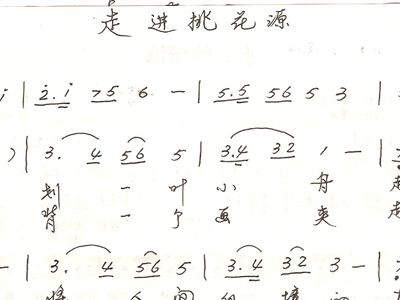 走进桃花源
i | 2. i 75 6 — | 5.5 56 5 3 |
) 3. 4 56 5 | 3.4 32 1 — |
划 一 叶 小 舟
背 一 个 画 夹
— | 3. 4 56 5 | 3.4 32 3 — |